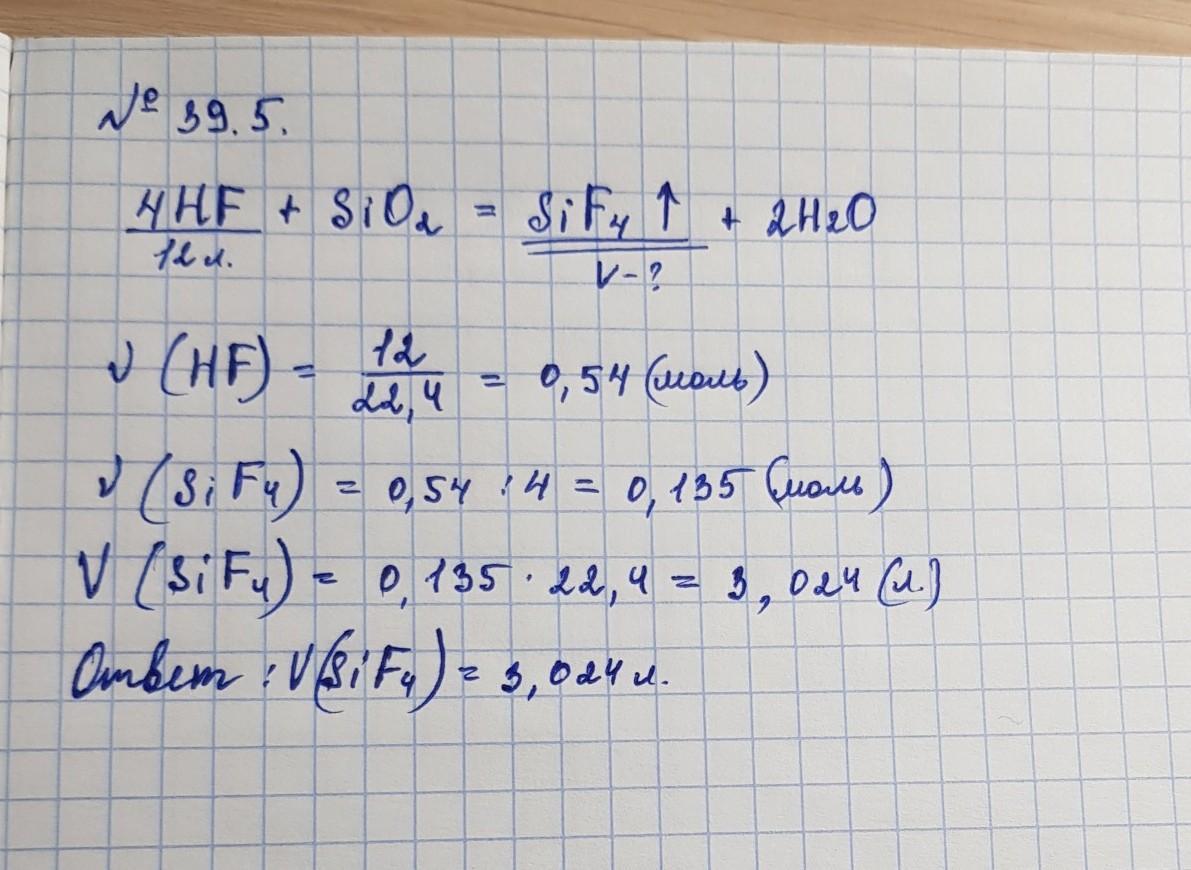 № 39.5.
4HF + SiO₂ = SiF₄ ↑ + 2H₂O
12 л. V-?
ν (HF) = 12/22,4 = 0,54 (моль)
ν (SiF₄) = 0,54 : 4 = 0,135 (моль)
V (SiF₄) = 0,135 · 22,4 = 3,024 (л.)
Ответ : V(SiF₄) = 3,024 л.